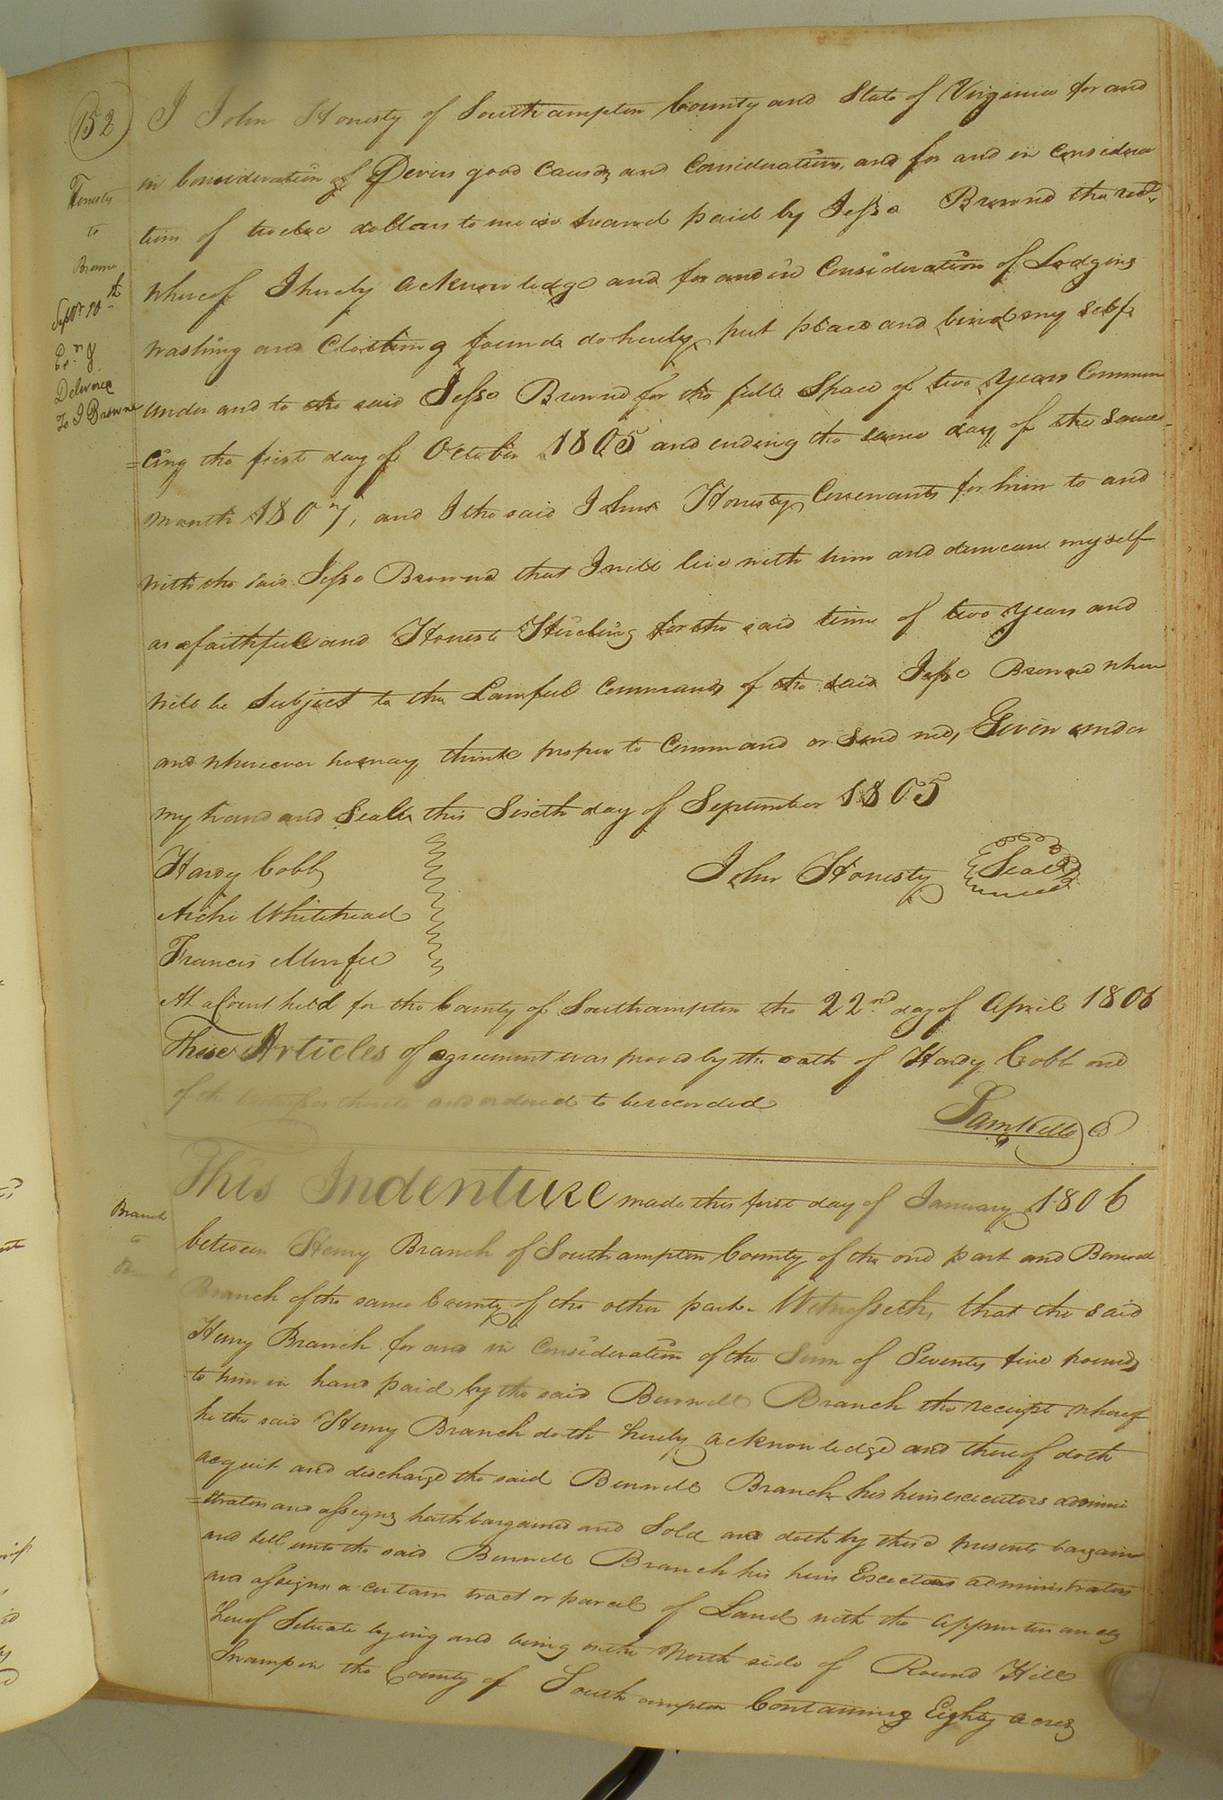 152
Honesty
to
Browne
Sept 10th
Exn &
Deliverd
To J Browne
I John Honesty of Southampton County and State of Virginia for and
in Consideration of Divers good Causes and Considerations, and for and in Considera
tion of twelve dollars to me in hand paid by Jesse Browne the rect.
whereof I hereby acknowledge and for and in Consideration of Lodging
washing and Clothing found do hereby put place and bind my self
under and to the said Jesse Browne for the full Space of two years Commen
=cing the first day of October 1805 and ending the same day of the same
month 1807, and I the said John Honesty Covenants for him to and
with the said Jesse Browne that I will live with him and demeane myself
as a faithfull and Honest Hireling for the said time of two years and
will be Subject to the Lawfull Commands of the said Jesse Browne when
and whereever he may think proper to Command or send me, Given under
my hand and Seale this Sixth day of September 1805
Hardy Cobb
John Honesty Seal
Archi Whitehead
Francis Murfee
At a Court held for the County of Southampton the 22nd day of April 1806
These Articles of agreement was proved by the oath of Hardy Cobb one
of the witnesses thereto and ordered to be recorded
Sam Kello C
Branch
to
This Indenture made this first day of January 1806
between Henry Branch of Southampton County of the one part and Bennett
Branch of the same County of the other part. Witnesseth, that the said
Henry Branch for and in Consideration of the Sum of Seventy five pounds
to him in hand paid by the said Bennett Branch the receipt whereof
he the said Henry Branch doth hereby acknowledge and thereof doth
acquit and discharge the said Bennett Branch his heirs executors admini
=strators and assigns hath bargained and Sold and doth by these presents bargain
and sell unto the said Bennett Branch his heirs Executors administrators
and assigns a certain tract or parcel of Land with the appurtenances
thereof Situate lying and being on the North side of Round Hill
Swamp in the County of Southampton Containing Eighty acres